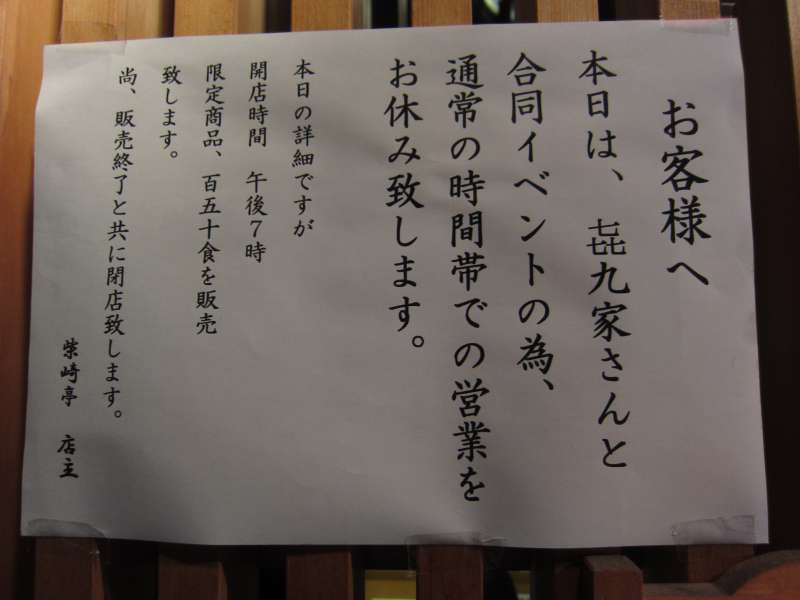 お客様へ
本日は、㐂九家さんと
合同イベントの為、
通常の時間帯での営業を
お休み致します。
本日の詳細ですが
開店時間　午後7時
限定商品、百五十食を販売
致します。
尚、販売終了と共に閉店致します。
柴崎亭　店主